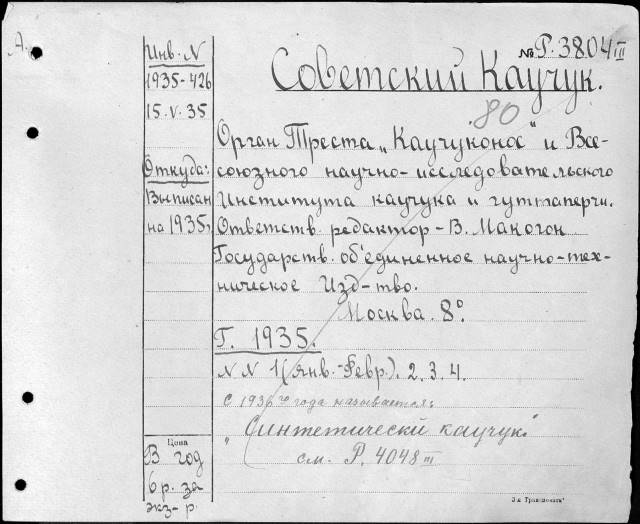 А.
№ Р. 3804 III
Советский Каучук.
80
Инв. N
1935-426
15.V.35
Откуда:
Выписан
на 1935г.
Орган Треста „Каучуконос" и Все-
союзного научно-исследовательского
Института каучука и гуттаперчи.
Ответств. редактор - В. Макогон
Государств. об'единенное научно-тех-
ническое Изд-тво.
Москва. 8°.
Г. 1935.
N N 1 (янв.-Февр.). 2. 3. 4.
С 1936го года называется:
„Синтетически каучук"
см. Р. 4048 III
Цена
В год
6 р. за
экз-р.